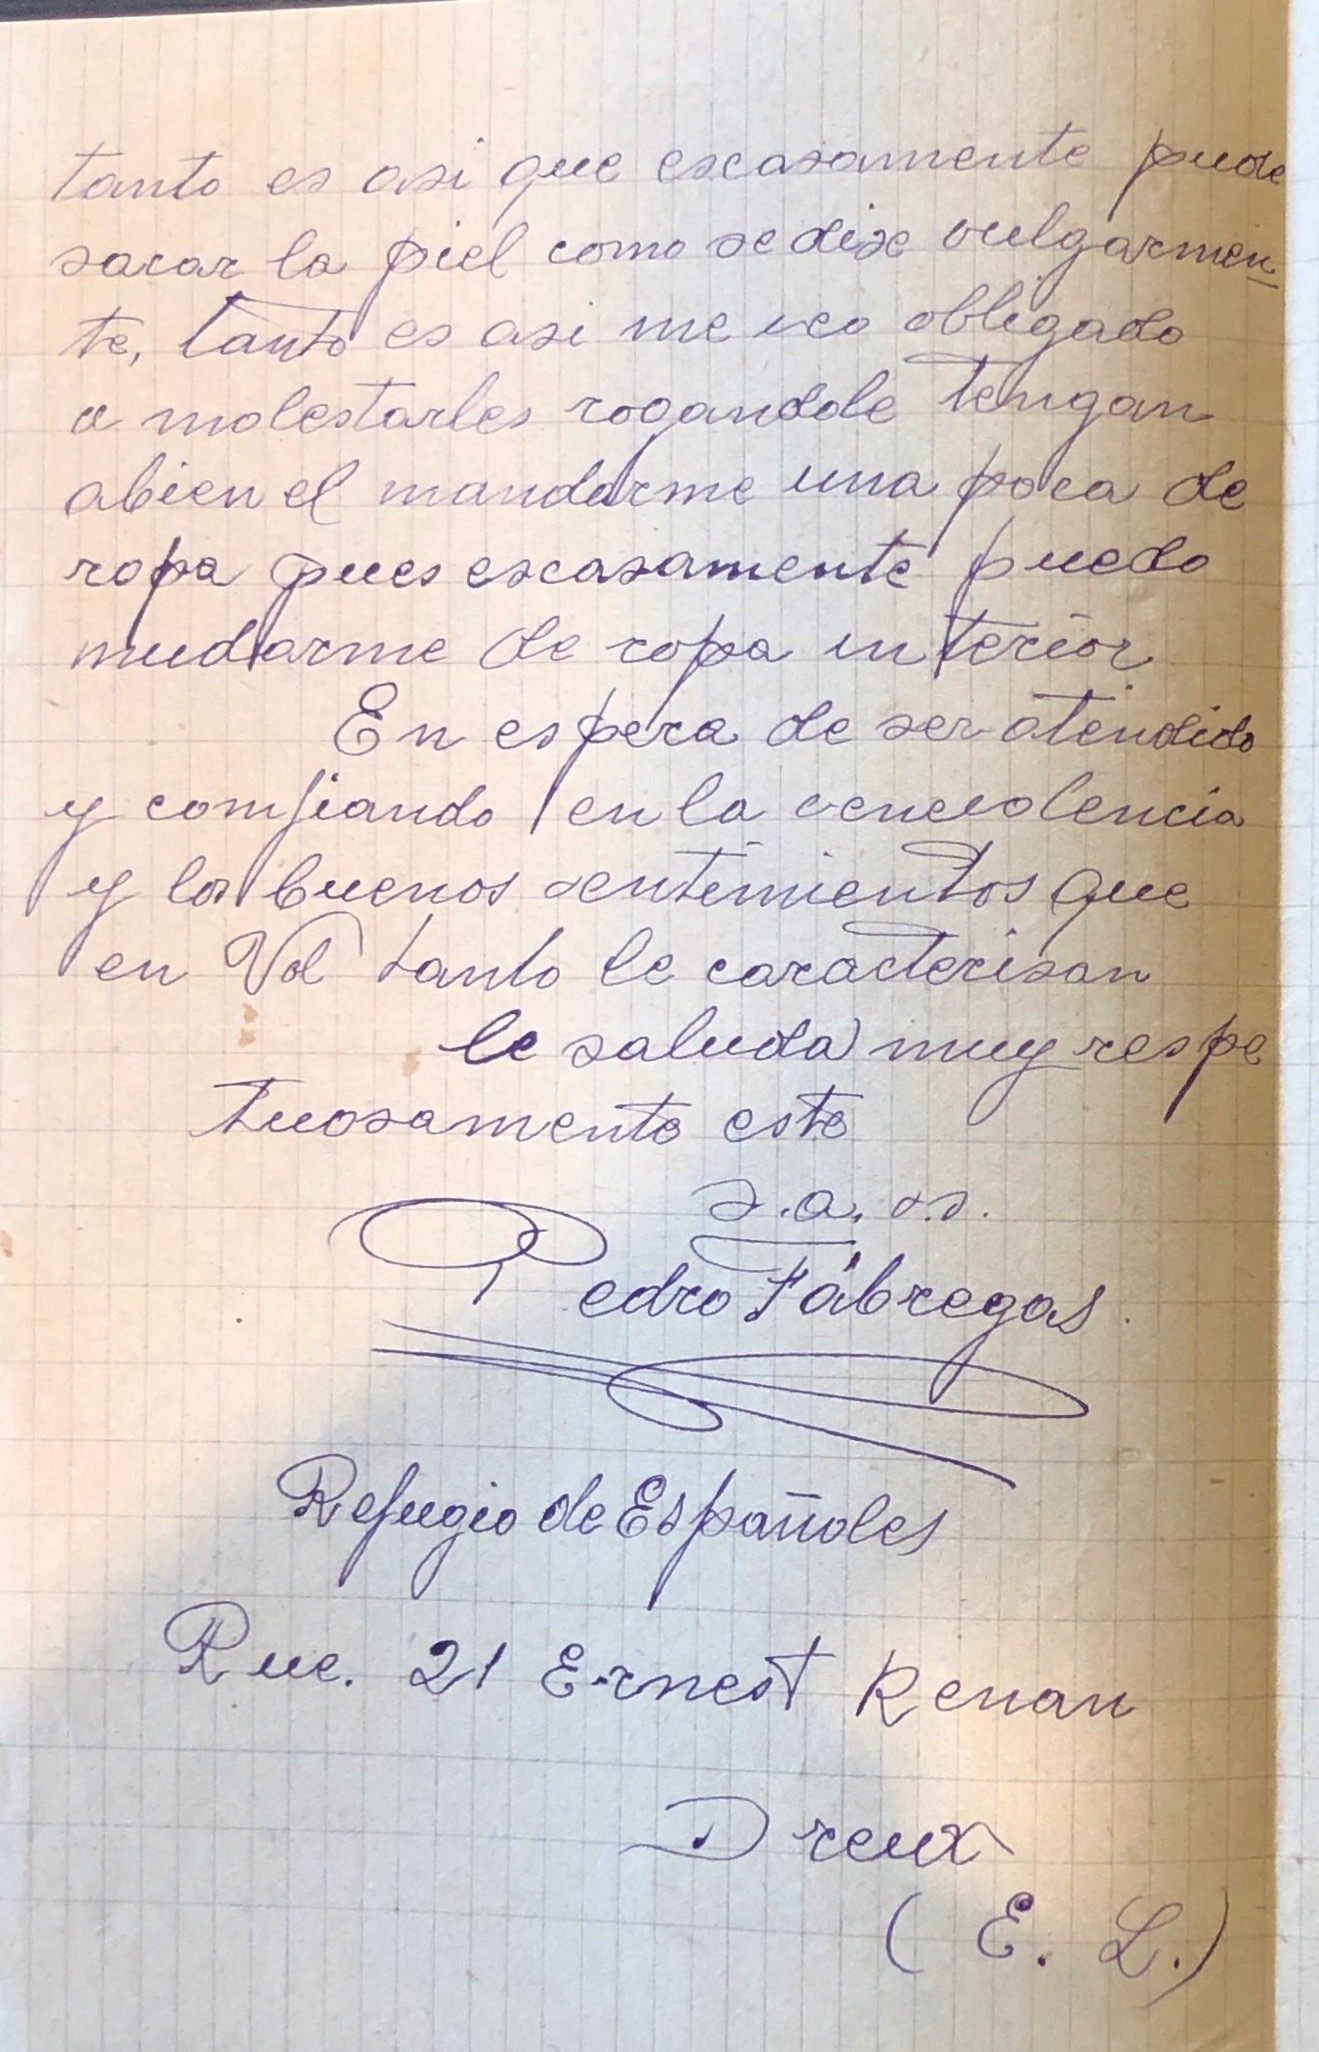 tanto es asi que escasamente pude
sacar la piel como se dise vulgarmen-
te, tanto es asi me veo obligado
a molestarles rogandole tengan
abien el mandarme una poca de
ropa pues escasamente puedo
mudarme de ropa interior
En espera de ser atendido
y comfiando en la venevolencia
y los buenos sentimientos que
en Vd tanto le caracterisan
le saluda muy respe
tuosamente este
s.a. s.s.
Pedro Fábregas.
Refugio de Españoles
Rue. 21 Ernest Renan
Dreux
(E. L.)